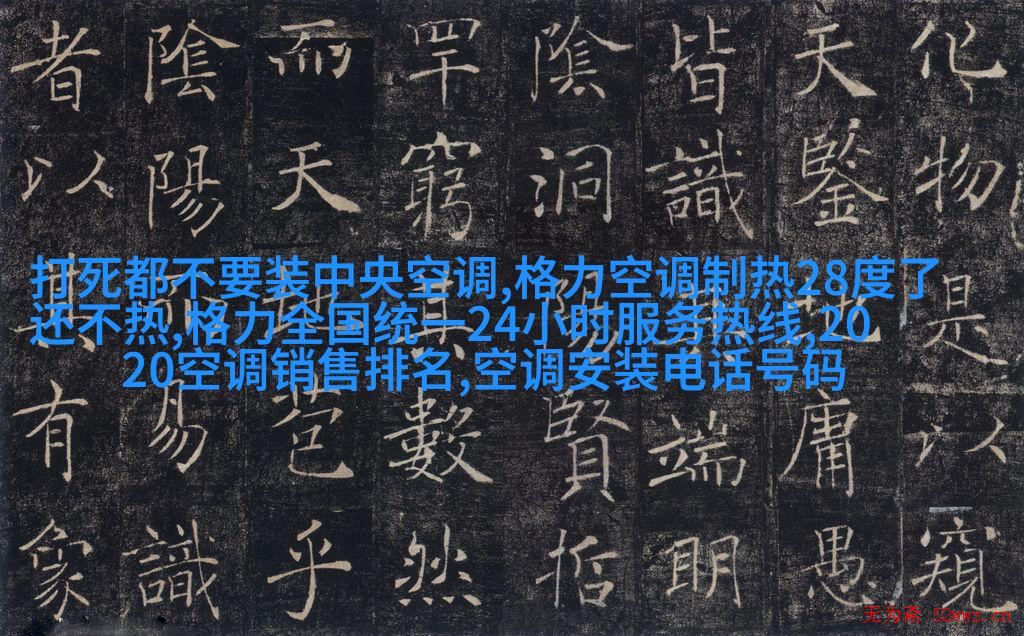 打死都不要装中央空调,格力空调制热28度了
还不热,格力全国统一24小时服务热线,20
20空调销售排名,空调安装电话号码
化物是以窺
天鑒地庸愚
皆識其端明
陰洞陽賢哲
罕窮其數然
而天地苞乎
陰陽而易識
者以其有象
无为斋 52wwz.cn